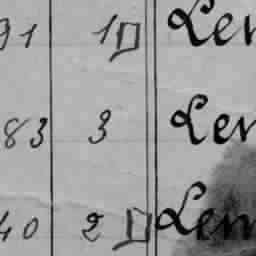 91 1 Len
83 3 Len
40 2 Len